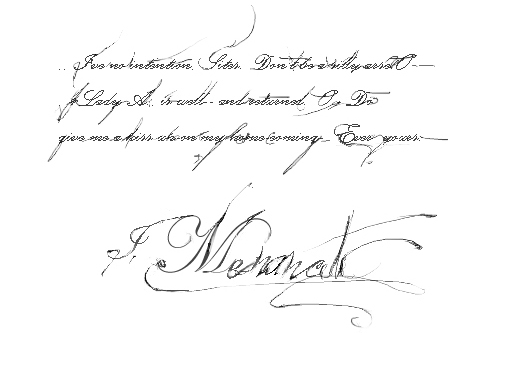 I've no intention, Sister. Don't be a silly ass! O
if Lady A. is well - and returned. O, Do
give me a kiss upon my homecoming - Ever yours:
F. M